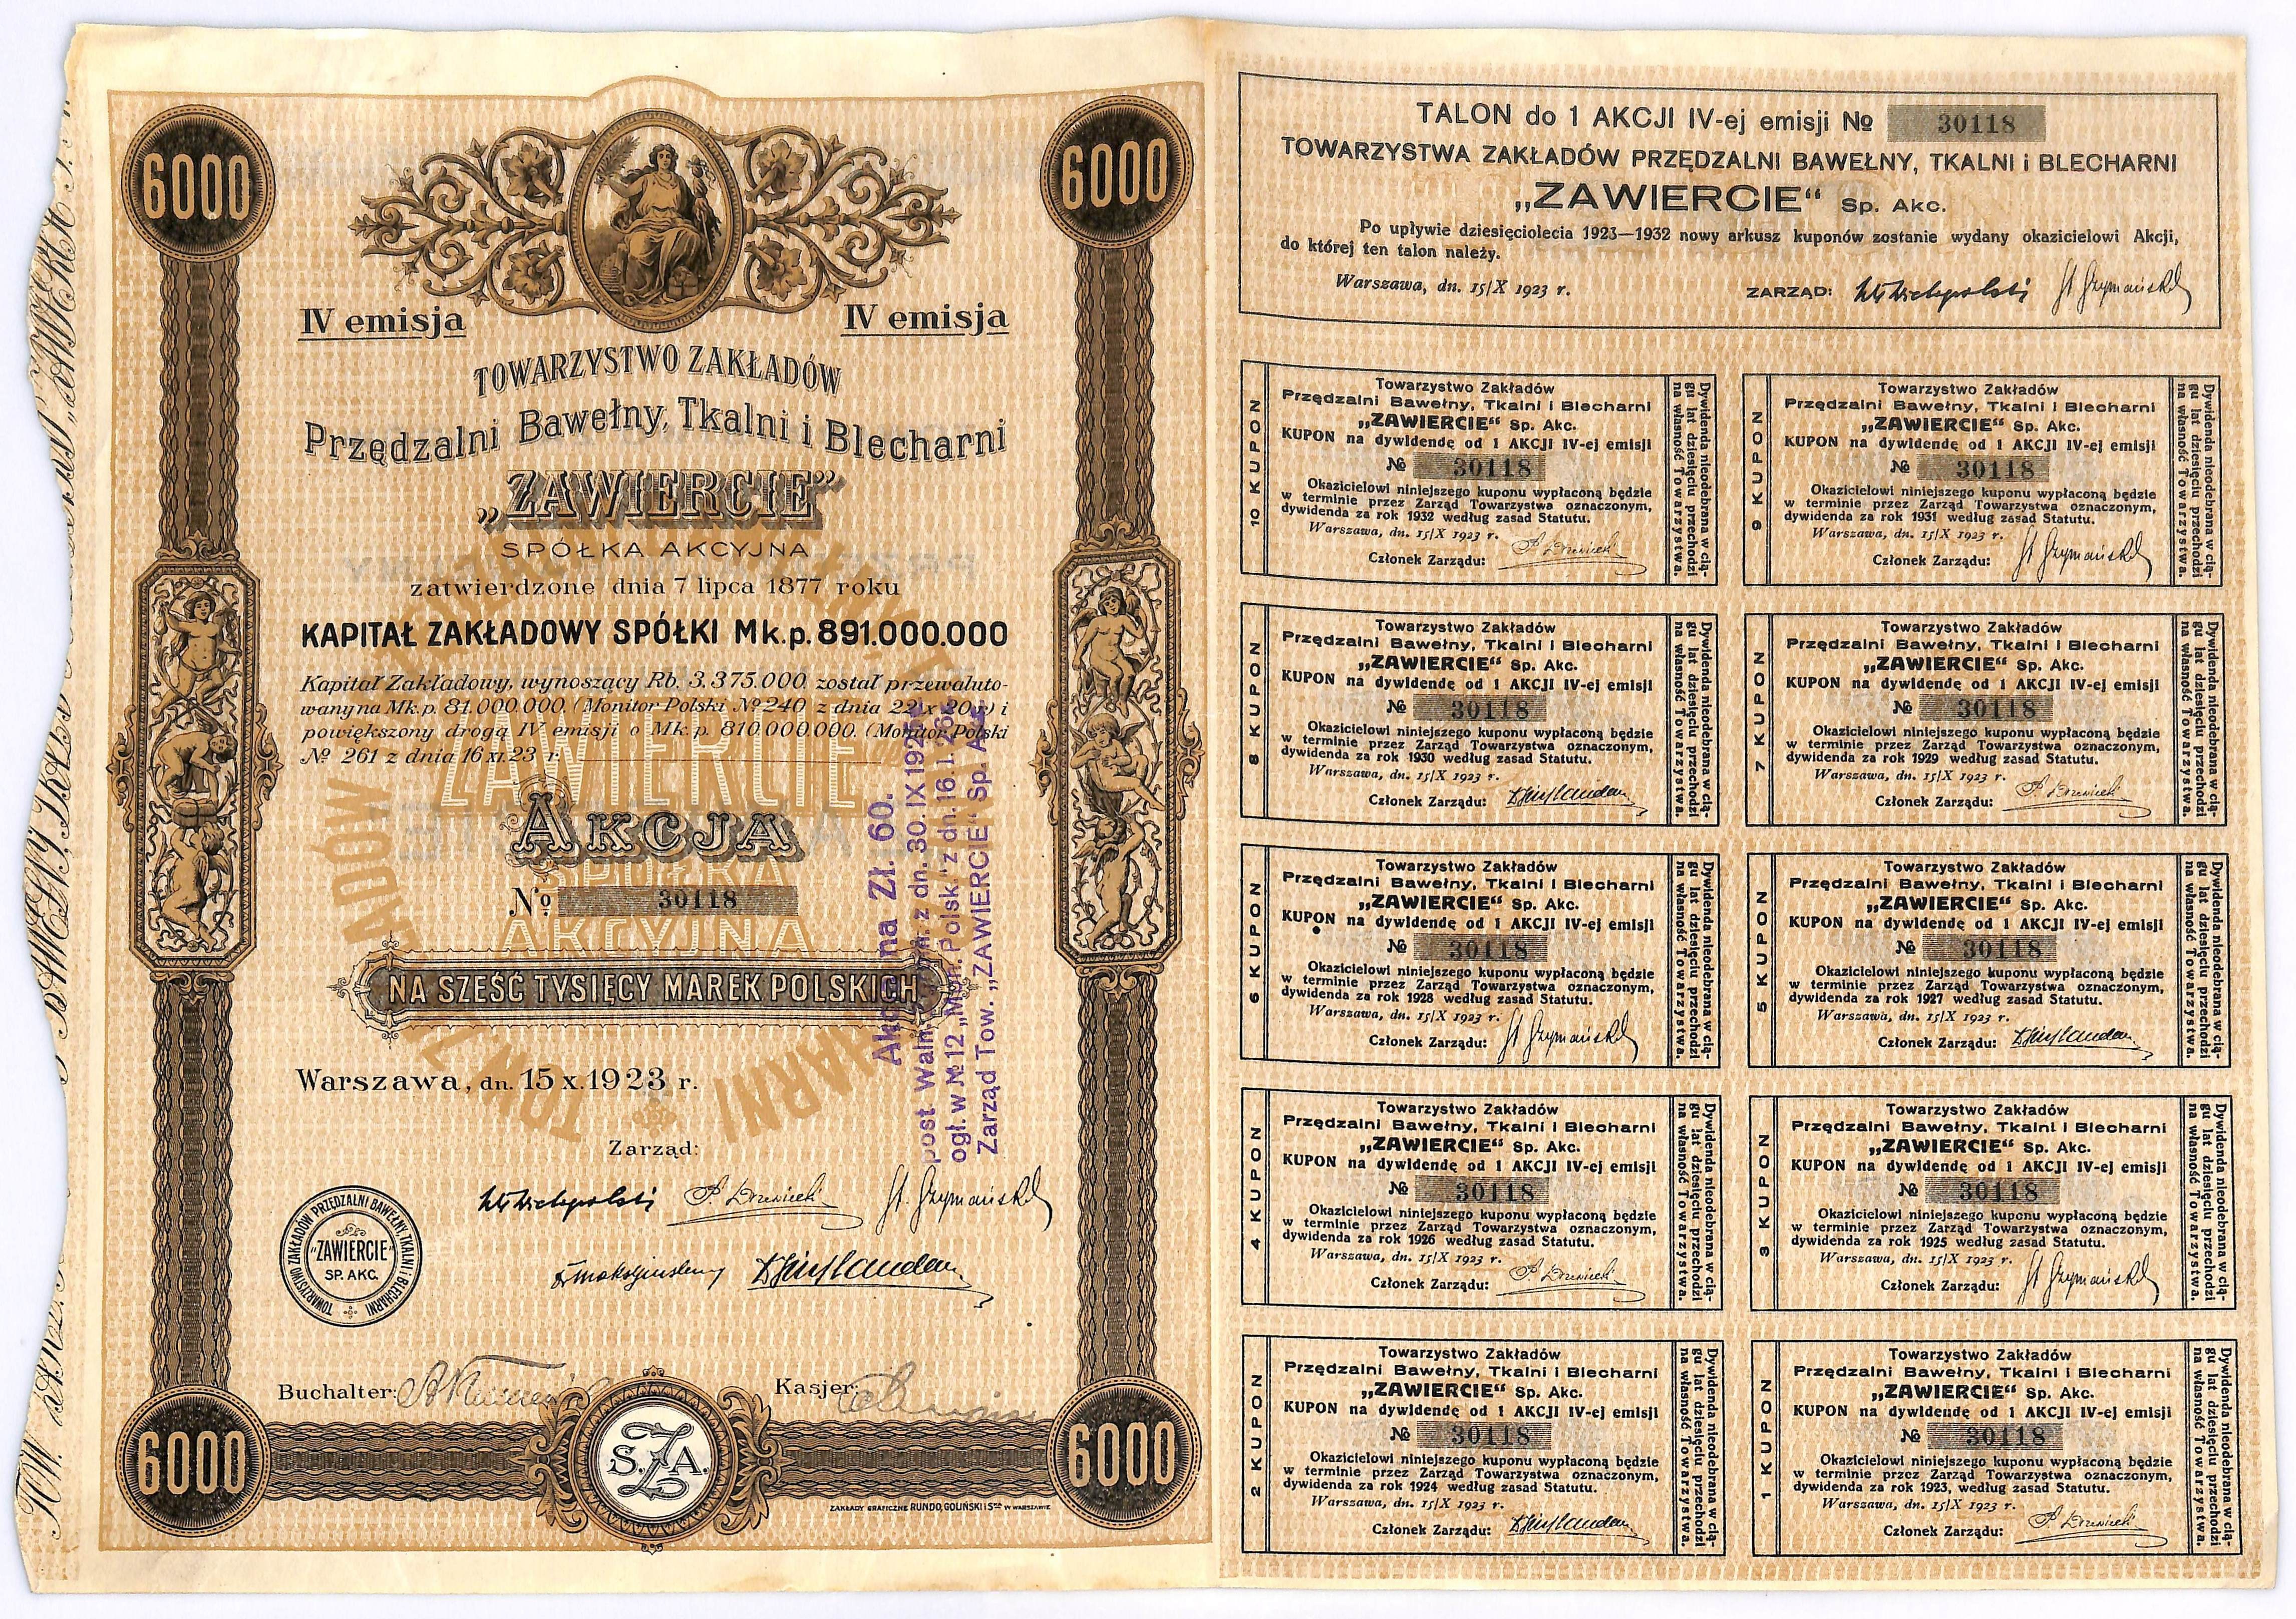 6000
6000
IV emisja
IV emisja
TOWARZYSTWO ZAKŁADÓW
Przędzalni Bawełny, Tkalni i Blecharni
„ZAWIERCIE”
SPÓŁKA AKCYJNA
zatwierdzone dnia 7 lipca 1877 roku
KAPITAŁ ZAKŁADOWY SPÓŁKI Mk.p. 891.000.000
Kapitał Zakładowy, wynoszący Rb. 3.375.000 został przewaluto-
wany na Mk.p. 81.000.000. (Monitor Polski № 240 z dnia 22 x 20 r.) i
powiększony drogą IV emisji o Mk.p. 810.000.000. (Monitor Polski
№ 261 z dnia 16 XI.23 r.
ZAWIERCIE
AKCJA
SPÓŁKA
№ 30118
AKCYJNA
NA SZEŚĆ TYSIĘCY MAREK POLSKICH
Warszawa, dn. 15 x. 1923 r.
Zarząd:
TOWARZYSTWO ZAKŁADÓW PRZĘDZALNI BAWEŁNY, TKALNI i BLECHARNI
"ZAWIERCIE"
SP. AKC.
Buchalter:
Kasjer:
6000
S.Z.A.
6000
ZAKŁADY GRAFICZNE RUNDO, GOLIŃSKI i S-ka W WARSZAWIE
na Zł. 60.
z dn. 30. IX 1925 r.
ogł. w № 12 „Mon. Polsk." z dn. 16. I. 26 r.
Zarząd Tow. „ZAWIERCIE" Sp. Akc.
TALON do 1 AKCJI IV-ej emisji № 30118
TOWARZYSTWA ZAKŁADÓW PRZĘDZALNI BAWEŁNY, TKALNI i BLECHARNI
„ZAWIERCIE“ Sp. Akc.
Po upływie dziesięciolecia 1923—1932 nowy arkusz kuponów zostanie wydany okazicielowi Akcji,
do której ten talon należy.
Warszawa, dn. 15/X 1923 r.
ZARZĄD:
10 KUPON
Towarzystwo Zakładów
Przędzalni Bawełny, Tkalni i Blecharni
„ZAWIERCIE“ Sp. Akc.
KUPON na dywidendę od 1 AKCJI IV-ej emisji
№ 30118
Okazicielowi niniejszego kuponu wypłaconą będzie
w terminie przez Zarząd Towarzystwa oznaczonym,
dywidenda za rok 1932 według zasad Statutu.
Warszawa, dn. 15/X 1923 r.
Członek Zarządu:
Dywidenda nieodebrana w cią-
gu lat dziesięciu przechodzi
na własność Towarzystwa.
9 KUPON
Towarzystwo Zakładów
Przędzalni Bawełny, Tkalni i Blecharni
„ZAWIERCIE“ Sp. Akc.
KUPON na dywidendę od 1 AKCJI IV-ej emisji
№ 30118
Okazicielowi niniejszego kuponu wypłaconą będzie
w terminie przez Zarząd Towarzystwa oznaczonym,
dywidenda za rok 1931 według zasad Statutu.
Warszawa, dn. 15/X 1923 r.
Członek Zarządu:
Dywidenda nieodebrana w cią-
gu lat dziesięciu przechodzi
na własność Towarzystwa.
8 KUPON
Towarzystwo Zakładów
Przędzalni Bawełny, Tkalni i Blecharni
„ZAWIERCIE“ Sp. Akc.
KUPON na dywidendę od 1 AKCJI IV-ej emisji
№ 30118
Okazicielowi niniejszego kuponu wypłaconą będzie
w terminie przez Zarząd Towarzystwa oznaczonym,
dywidenda za rok 1930 według zasad Statutu.
Warszawa, dn. 15/X 1923 r.
Członek Zarządu:
Dywidenda nieodebrana w cią-
gu lat dziesięciu przechodzi
na własność Towarzystwa.
7 KUPON
Towarzystwo Zakładów
Przędzalni Bawełny, Tkalni i Blecharni
„ZAWIERCIE“ Sp. Akc.
KUPON na dywidendę od 1 AKCJI IV-ej emisji
№ 30118
Okazicielowi niniejszego kuponu wypłaconą będzie
w terminie przez Zarząd Towarzystwa oznaczonym,
dywidenda za rok 1929 według zasad Statutu.
Warszawa, dn. 15/X 1923 r.
Członek Zarządu:
Dywidenda nieodebrana w cią-
gu lat dziesięciu przechodzi
na własność Towarzystwa.
6 KUPON
Towarzystwo Zakładów
Przędzalni Bawełny, Tkalni i Blecharni
„ZAWIERCIE“ Sp. Akc.
KUPON na dywidendę od 1 AKCJI IV-ej emisji
№ 30118
Okazicielowi niniejszego kuponu wypłaconą będzie
w terminie przez Zarząd Towarzystwa oznaczonym,
dywidenda za rok 1928 według zasad Statutu.
Warszawa, dn. 15/X 1923 r.
Członek Zarządu:
Dywidenda nieodebrana w cią-
gu lat dziesięciu przechodzi
na własność Towarzystwa.
5 KUPON
Towarzystwo Zakładów
Przędzalni Bawełny, Tkalni i Blecharni
„ZAWIERCIE“ Sp. Akc.
KUPON na dywidendę od 1 AKCJI IV-ej emisji
№ 30118
Okazicielowi niniejszego kuponu wypłaconą będzie
w terminie przez Zarząd Towarzystwa oznaczonym,
dywidenda za rok 1927 według zasad Statutu.
Warszawa, dn. 15/X 1923 r.
Członek Zarządu:
Dywidenda nieodebrana w cią-
gu lat dziesięciu przechodzi
na własność Towarzystwa.
4 KUPON
Towarzystwo Zakładów
Przędzalni Bawełny, Tkalni i Blecharni
„ZAWIERCIE“ Sp. Akc.
KUPON na dywidendę od 1 AKCJI IV-ej emisji
№ 30118
Okazicielowi niniejszego kuponu wypłaconą będzie
w terminie przez Zarząd Towarzystwa oznaczonym,
dywidenda za rok 1926 według zasad Statutu.
Warszawa, dn. 15/X 1923 r.
Członek Zarządu:
Dywidenda nieodebrana w cią-
gu lat dziesięciu przechodzi
na własność Towarzystwa.
3 KUPON
Towarzystwo Zakładów
Przędzalni Bawełny, Tkalni i Blecharni
„ZAWIERCIE“ Sp. Akc.
KUPON na dywidendę od 1 AKCJI IV-ej emisji
№ 30118
Okazicielowi niniejszego kuponu wypłaconą będzie
w terminie przez Zarząd Towarzystwa oznaczonym,
dywidenda za rok 1925 według zasad Statutu.
Warszawa, dn. 15/X 1923 r.
Członek Zarządu:
Dywidenda nieodebrana w cią-
gu lat dziesięciu przechodzi
na własność Towarzystwa.
2 KUPON
Towarzystwo Zakładów
Przędzalni Bawełny, Tkalni i Blecharni
„ZAWIERCIE“ Sp. Akc.
KUPON na dywidendę od 1 AKCJI IV-ej emisji
№ 30118
Okazicielowi niniejszego kuponu wypłaconą będzie
w terminie przez Zarząd Towarzystwa oznaczonym,
dywidenda za rok 1924 według zasad Statutu.
Warszawa, dn. 15/X 1923 r.
Członek Zarządu:
Dywidenda nieodebrana w cią-
gu lat dziesięciu przechodzi
na własność Towarzystwa.
1 KUPON
Towarzystwo Zakładów
Przędzalni Bawełny, Tkalni i Blecharni
„ZAWIERCIE“ Sp. Akc.
KUPON na dywidendę od 1 AKCJI IV-ej emisji
№ 30118
Okazicielowi niniejszego kuponu wypłaconą będzie
w terminie przez Zarząd Towarzystwa oznaczonym,
dywidenda za rok 1923, według zasad Statutu.
Warszawa, dn. 15/X 1923 r.
Członek Zarządu:
Dywidenda nieodebrana w cią-
gu lat dziesięciu przechodzi
na własność Towarzystwa.